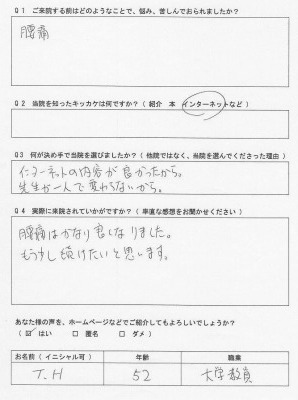 Q1 ご来院する前はどのようなことで、悩み、苦しんでおられましたか？
腰痛
Q2 当院を知ったキッカケは何ですか？（紹介 本 インターネットなど）
Q3 何が決め手で当院を選びましたか？（他院ではなく、当院を選んでくださった理由）
インターネットの内容が良かったから。
先生が一人で変わらないから。
Q4 実際に来院されていかがですか？（率直な感想をお聞かせください）
腰痛はかなり良くなりました。
もう少し続けたいと思います。
あなた様の声を、ホームページなどでご紹介してもよろしいでしょうか？
（☑ はい □ 匿名 □ ダメ）
お名前（イニシャル可） 年齢 職業
T.H 52 大学教員